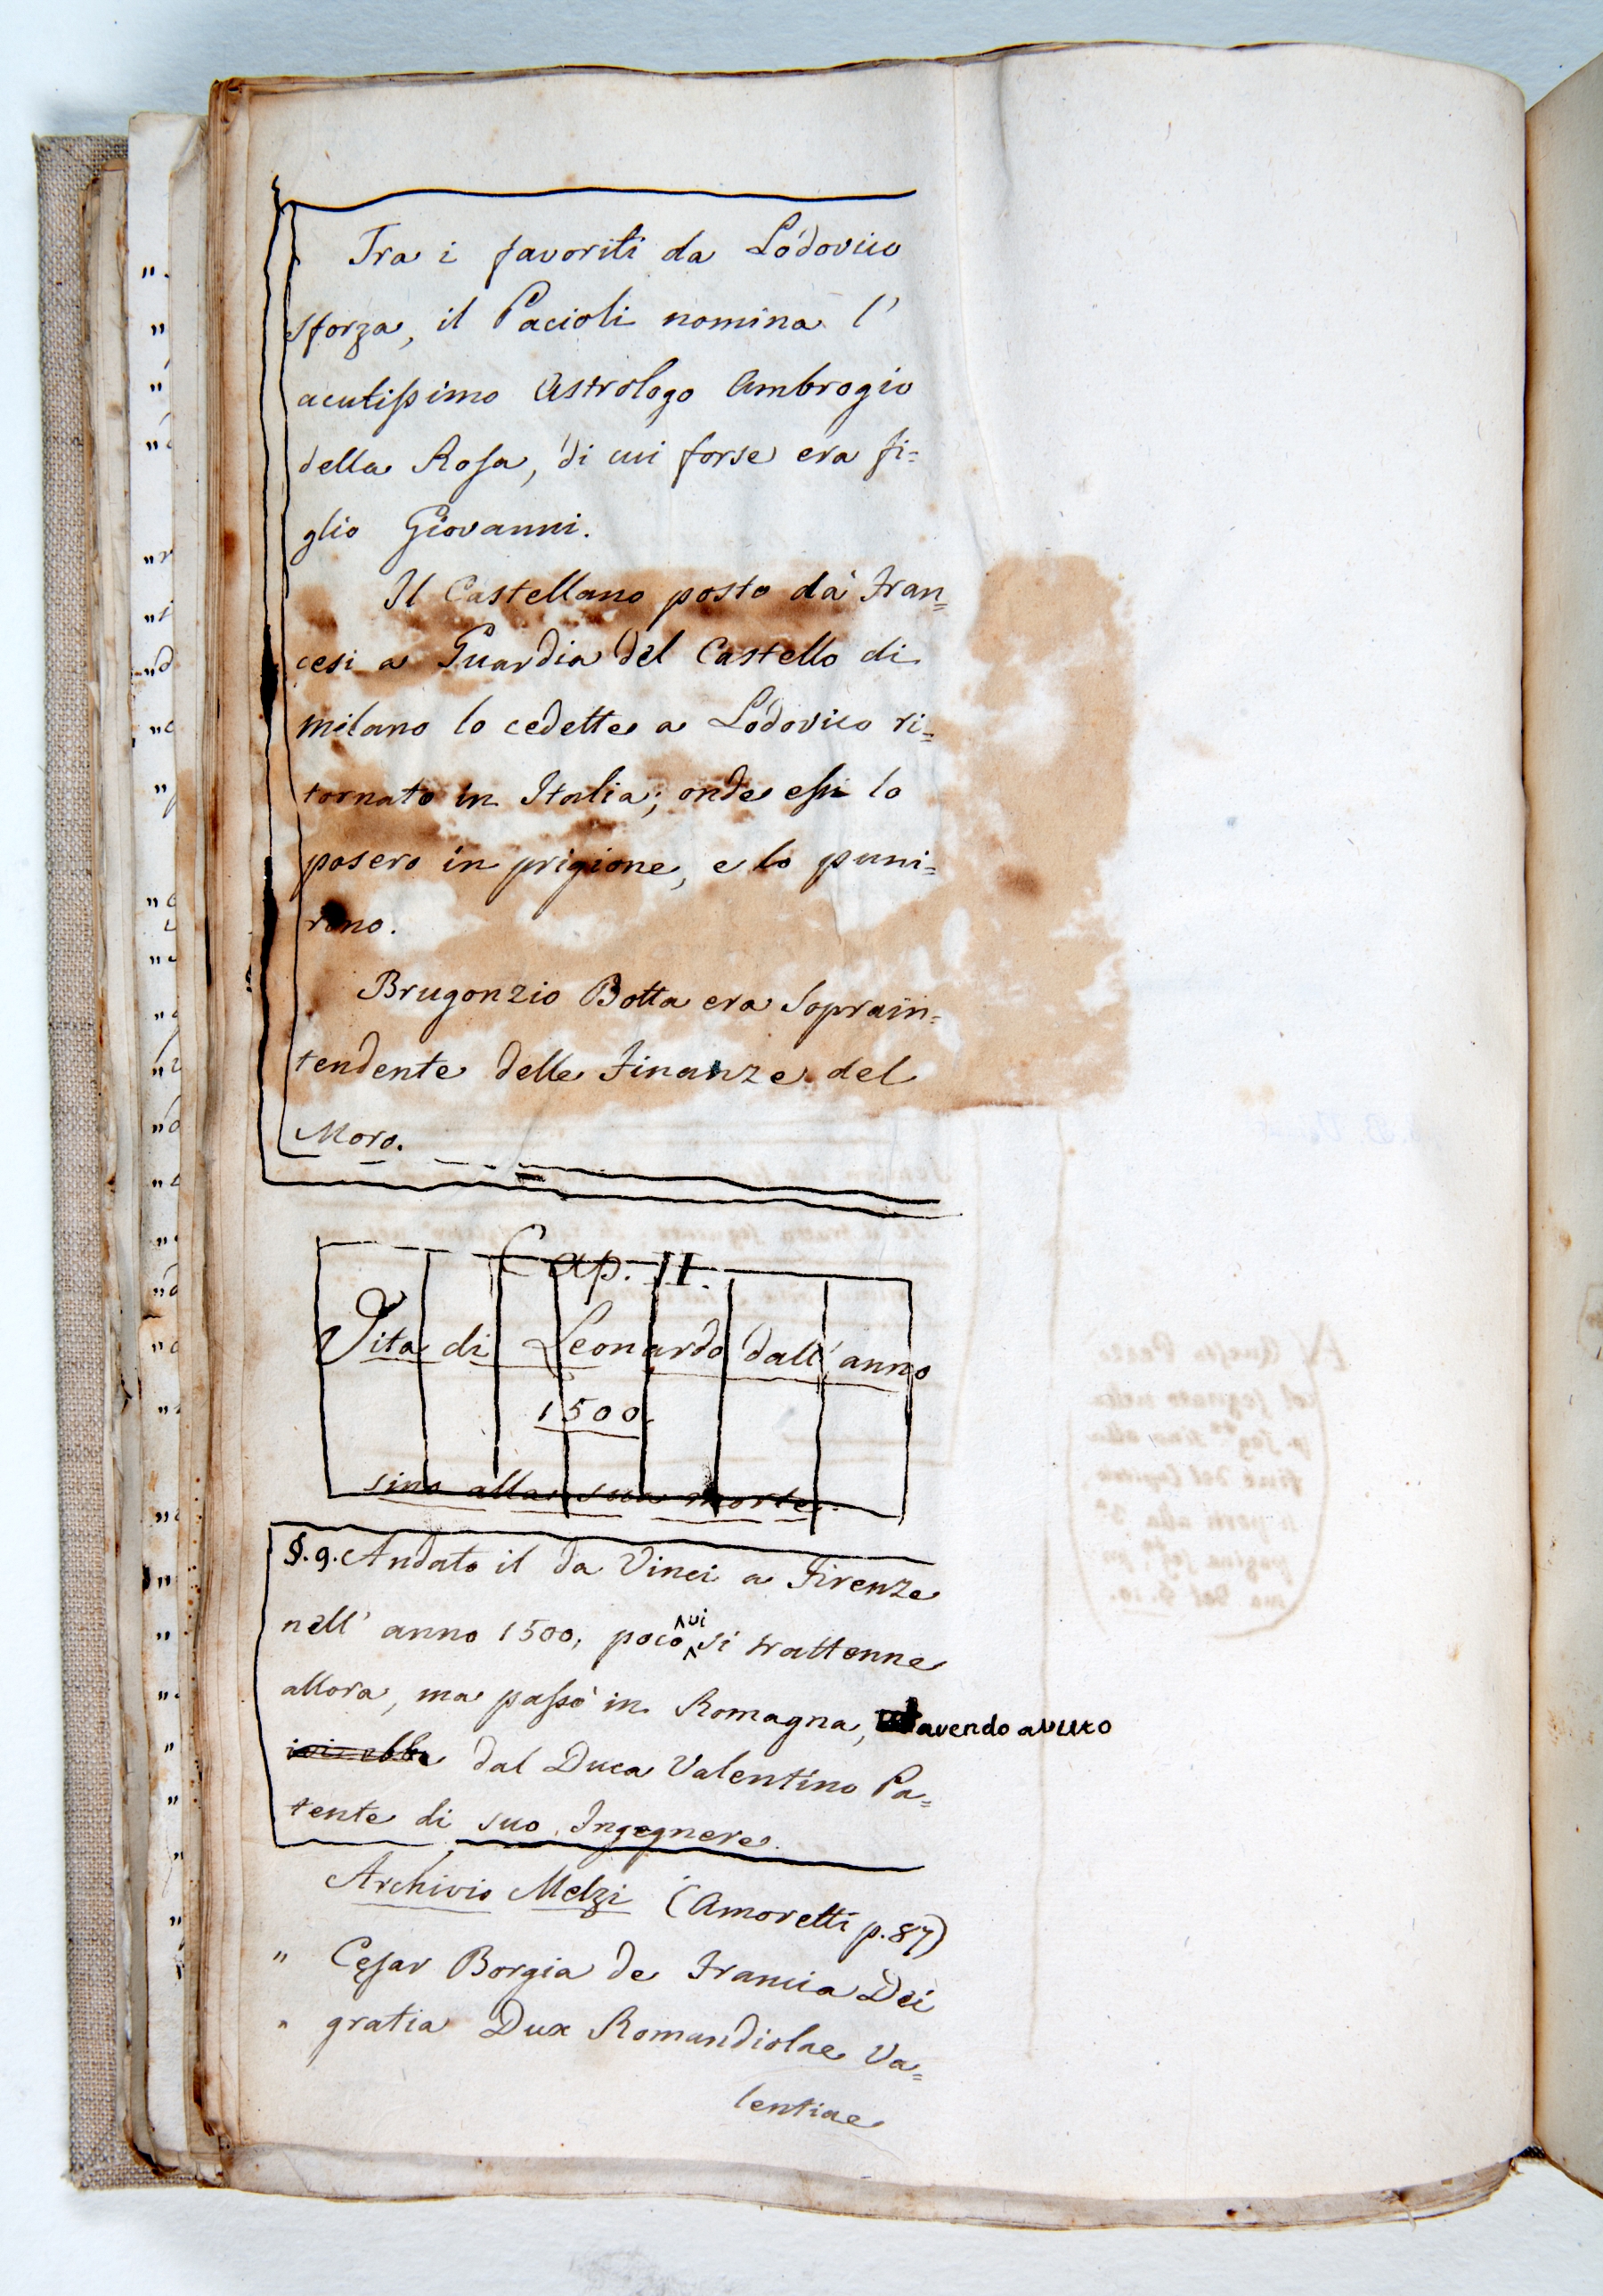 Tra i favoriti da Lodovico
Sforza, il Pacioli nomina l'
acutissimo Astrologo Ambrogio
della Rosa, di cui forse era fi=
glio Giovanni.
Il Castellano posto da' Fran=
cesi a Guardia del Castello di
Milano lo cedette a Lodovico ri=
tornato in Italia; onde essi lo
posero in prigione, e lo puni=
rono.
Brugonzio Botta era Soprain=
tendente delle Finanze del
Moro.
Cap. II.
Vita di Leonardo dall'anno
1500.
sino alla sua morte.
§.9. Andato il da Vinci a Firenze
nell'anno 1500, poco vi si trattenne
allora, ma passò in Romagna, avendo avuto
ivi ebbe dal Duca Valentino Pa=
tente di suo Ingegnere.
Archivio Melzi (Amoretti p.87)
" Cęsar Borgia de Francia Dei
" gratia Dux Romandiolae Va=
lentiae